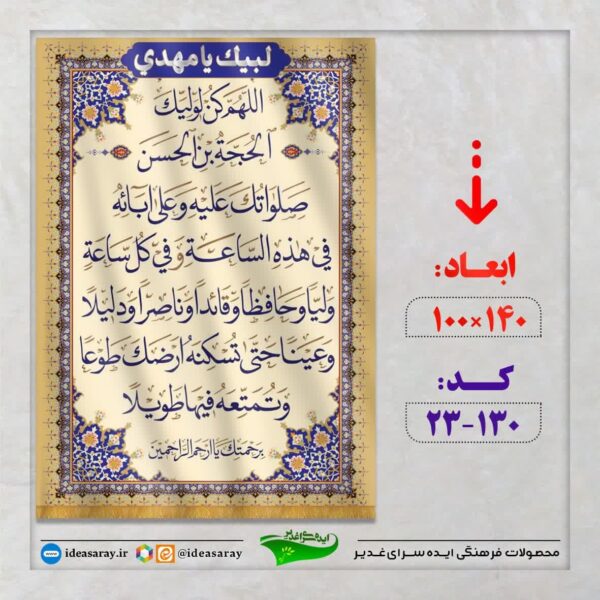 لبيك يا مهدي
اللهم كن لوليك
الحجة بن الحسن
صلواتك عليه وعلى ابائه
في هذه الساعة وفي كل ساعة
وليا وحافظا وقائدا وناصرا ودليلا
وعينا حتى تسكنه ارضك طوعا
وتمتعه فيها طويلا
برحمتك يا ارحم الراحمين
ابعاد:
۱۰۰×۱۴۰
کد:
۲۳-۱۳۰
ideasaray.ir
@ideasaray
ایده سرای غدیر
محصولات فرهنگی ایده سرای غدیر